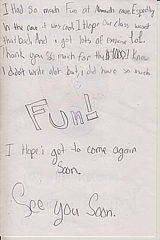 I Had So much Fun at Mammoth cave. Especially
in the cave it was cool I Hope our class wasnt
that bad. And i got lots of exercise lol.
Thank you so much for the I know
I didnt write alot but, i did have so much
Fun!
I Hope i get to come again
Soon.
See you Soon.